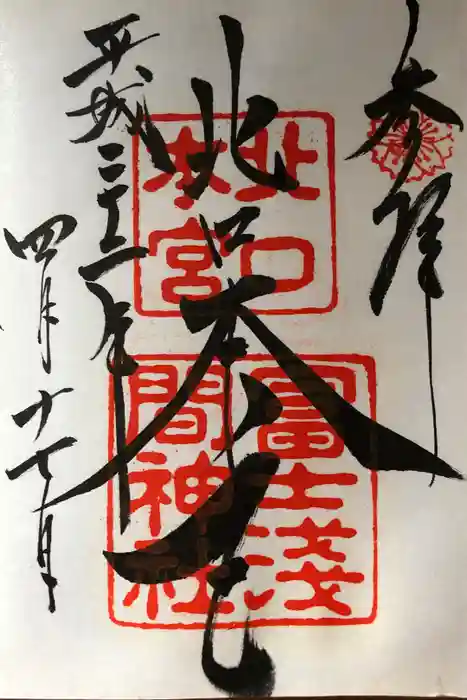 参拝
北口本宮
平成二十二年
四月十七日
北口
本宮
冨士浅
間神社